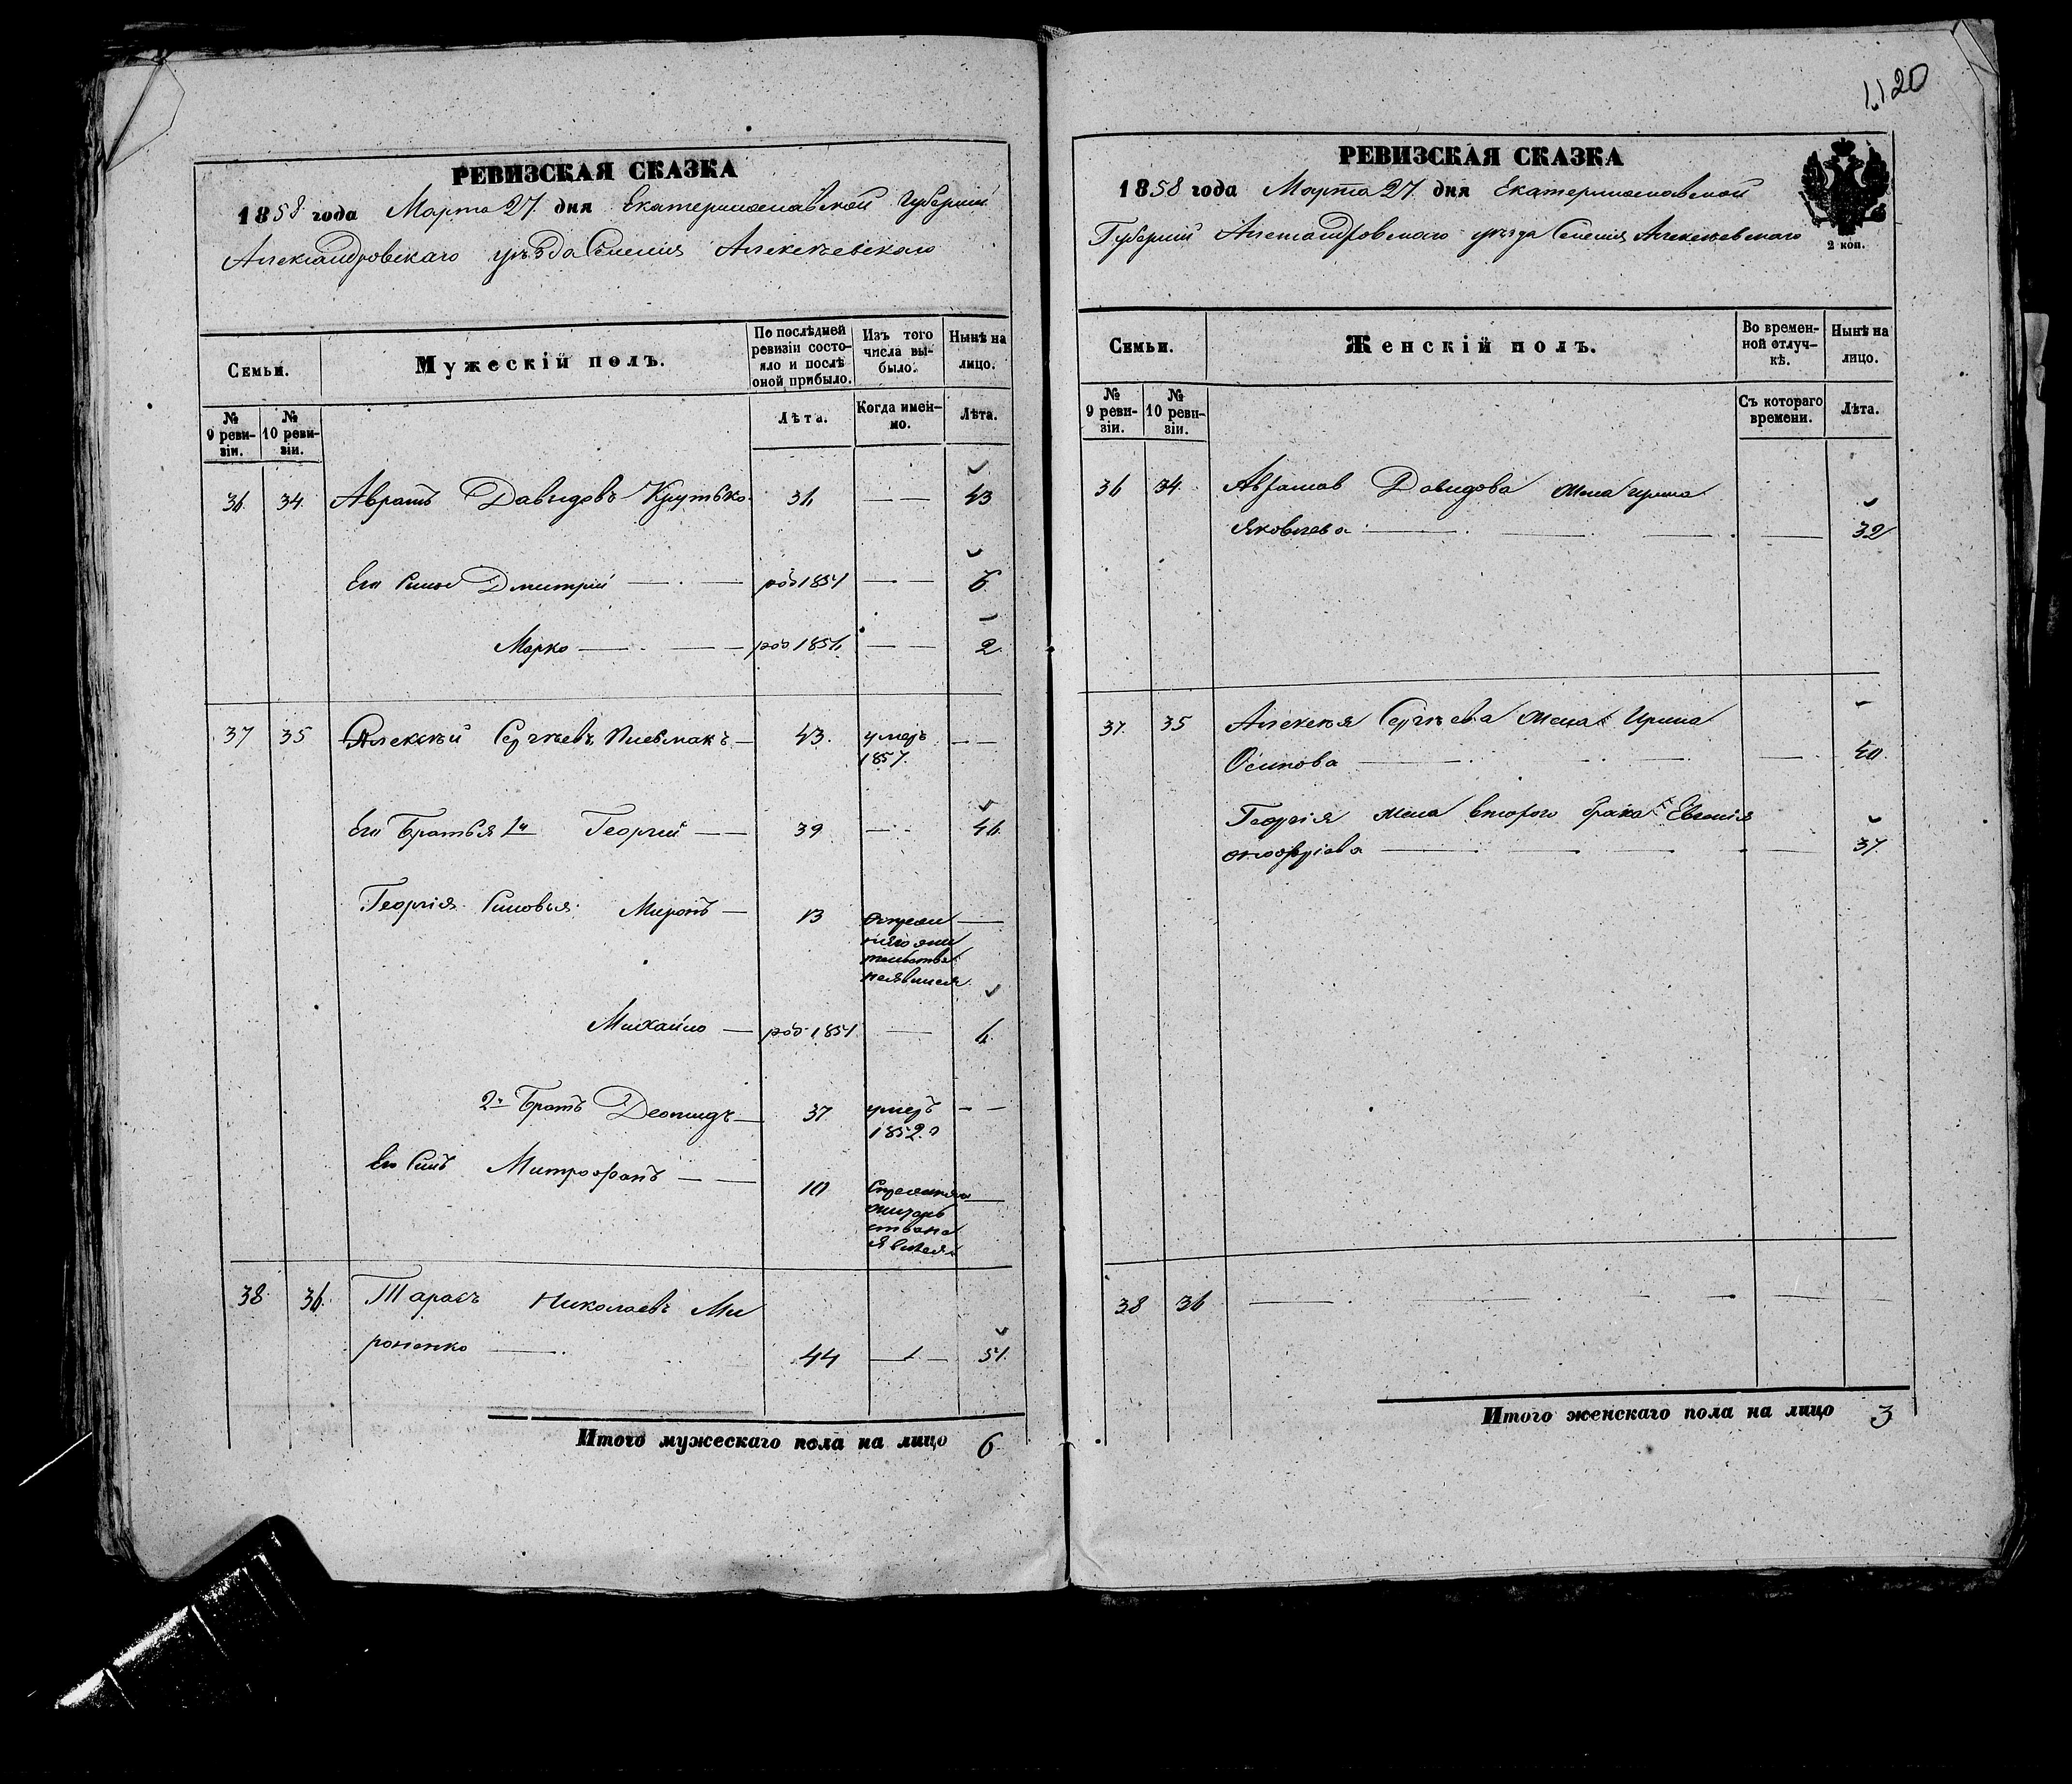 1120
РЕВИЗСКАЯ СКАЗКА
1858 года Марта 27 дня Екатеринославской Губернии
Александровскаго уѣзда Селенія Алексѣевскаго
Семьи.
Мужескій полъ.
По послѣдней ревизіи состояло и послѣ оной прибыло.
Изъ того числа выбыло.
Нынѣ на лицо.
№ 9 ревизіи.
№ 10 ревизіи.
Лѣта.
Когда именно.
Лѣта.
36 34 Аврамъ Давидовъ Крутько 36 — — 43
Его Сынъ Дмитрій — — род 1851 — — 6
Марко — — род 1856 — — 2
37 35 Алексѣй Сергѣевъ Письмакъ — 43 умеръ 1857 — —
Его Братья 1й Георгій — — 39 — 46
Георгія Сыновья Миронъ — 13 неявился —
Михайло — род 1851 — 6
2й Братъ Леонидъ — 37 умеръ 1852 — —
Его Сынъ Митрофанъ — — 10 —
38 36 Тарасъ Николаевъ Ми
роненко — 44 — 51
Итого мужескаго пола на лицо 6
РЕВИЗСКАЯ СКАЗКА
1858 года Марта 27 дня Екатеринославской
Губерніи Александровскаго уѣзда Селенія Алексѣевскаго
2 коп.
Семьи.
Женскій полъ.
Во временной отлучкѣ.
Нынѣ на лицо.
№ 9 ревизіи.
№ 10 ревизіи.
Съ котораго времени.
Лѣта.
36 34 Аврамов Давидова жена Ирина
Яковлева — — — — 32
37 35 Алексѣя Сергѣева жена Ирина
Осипова — — — — 40
Георгія жена втораго брака Евгенія
Онофріева — — — — 37
38 36 — — — — —
Итого женскаго пола на лицо 3